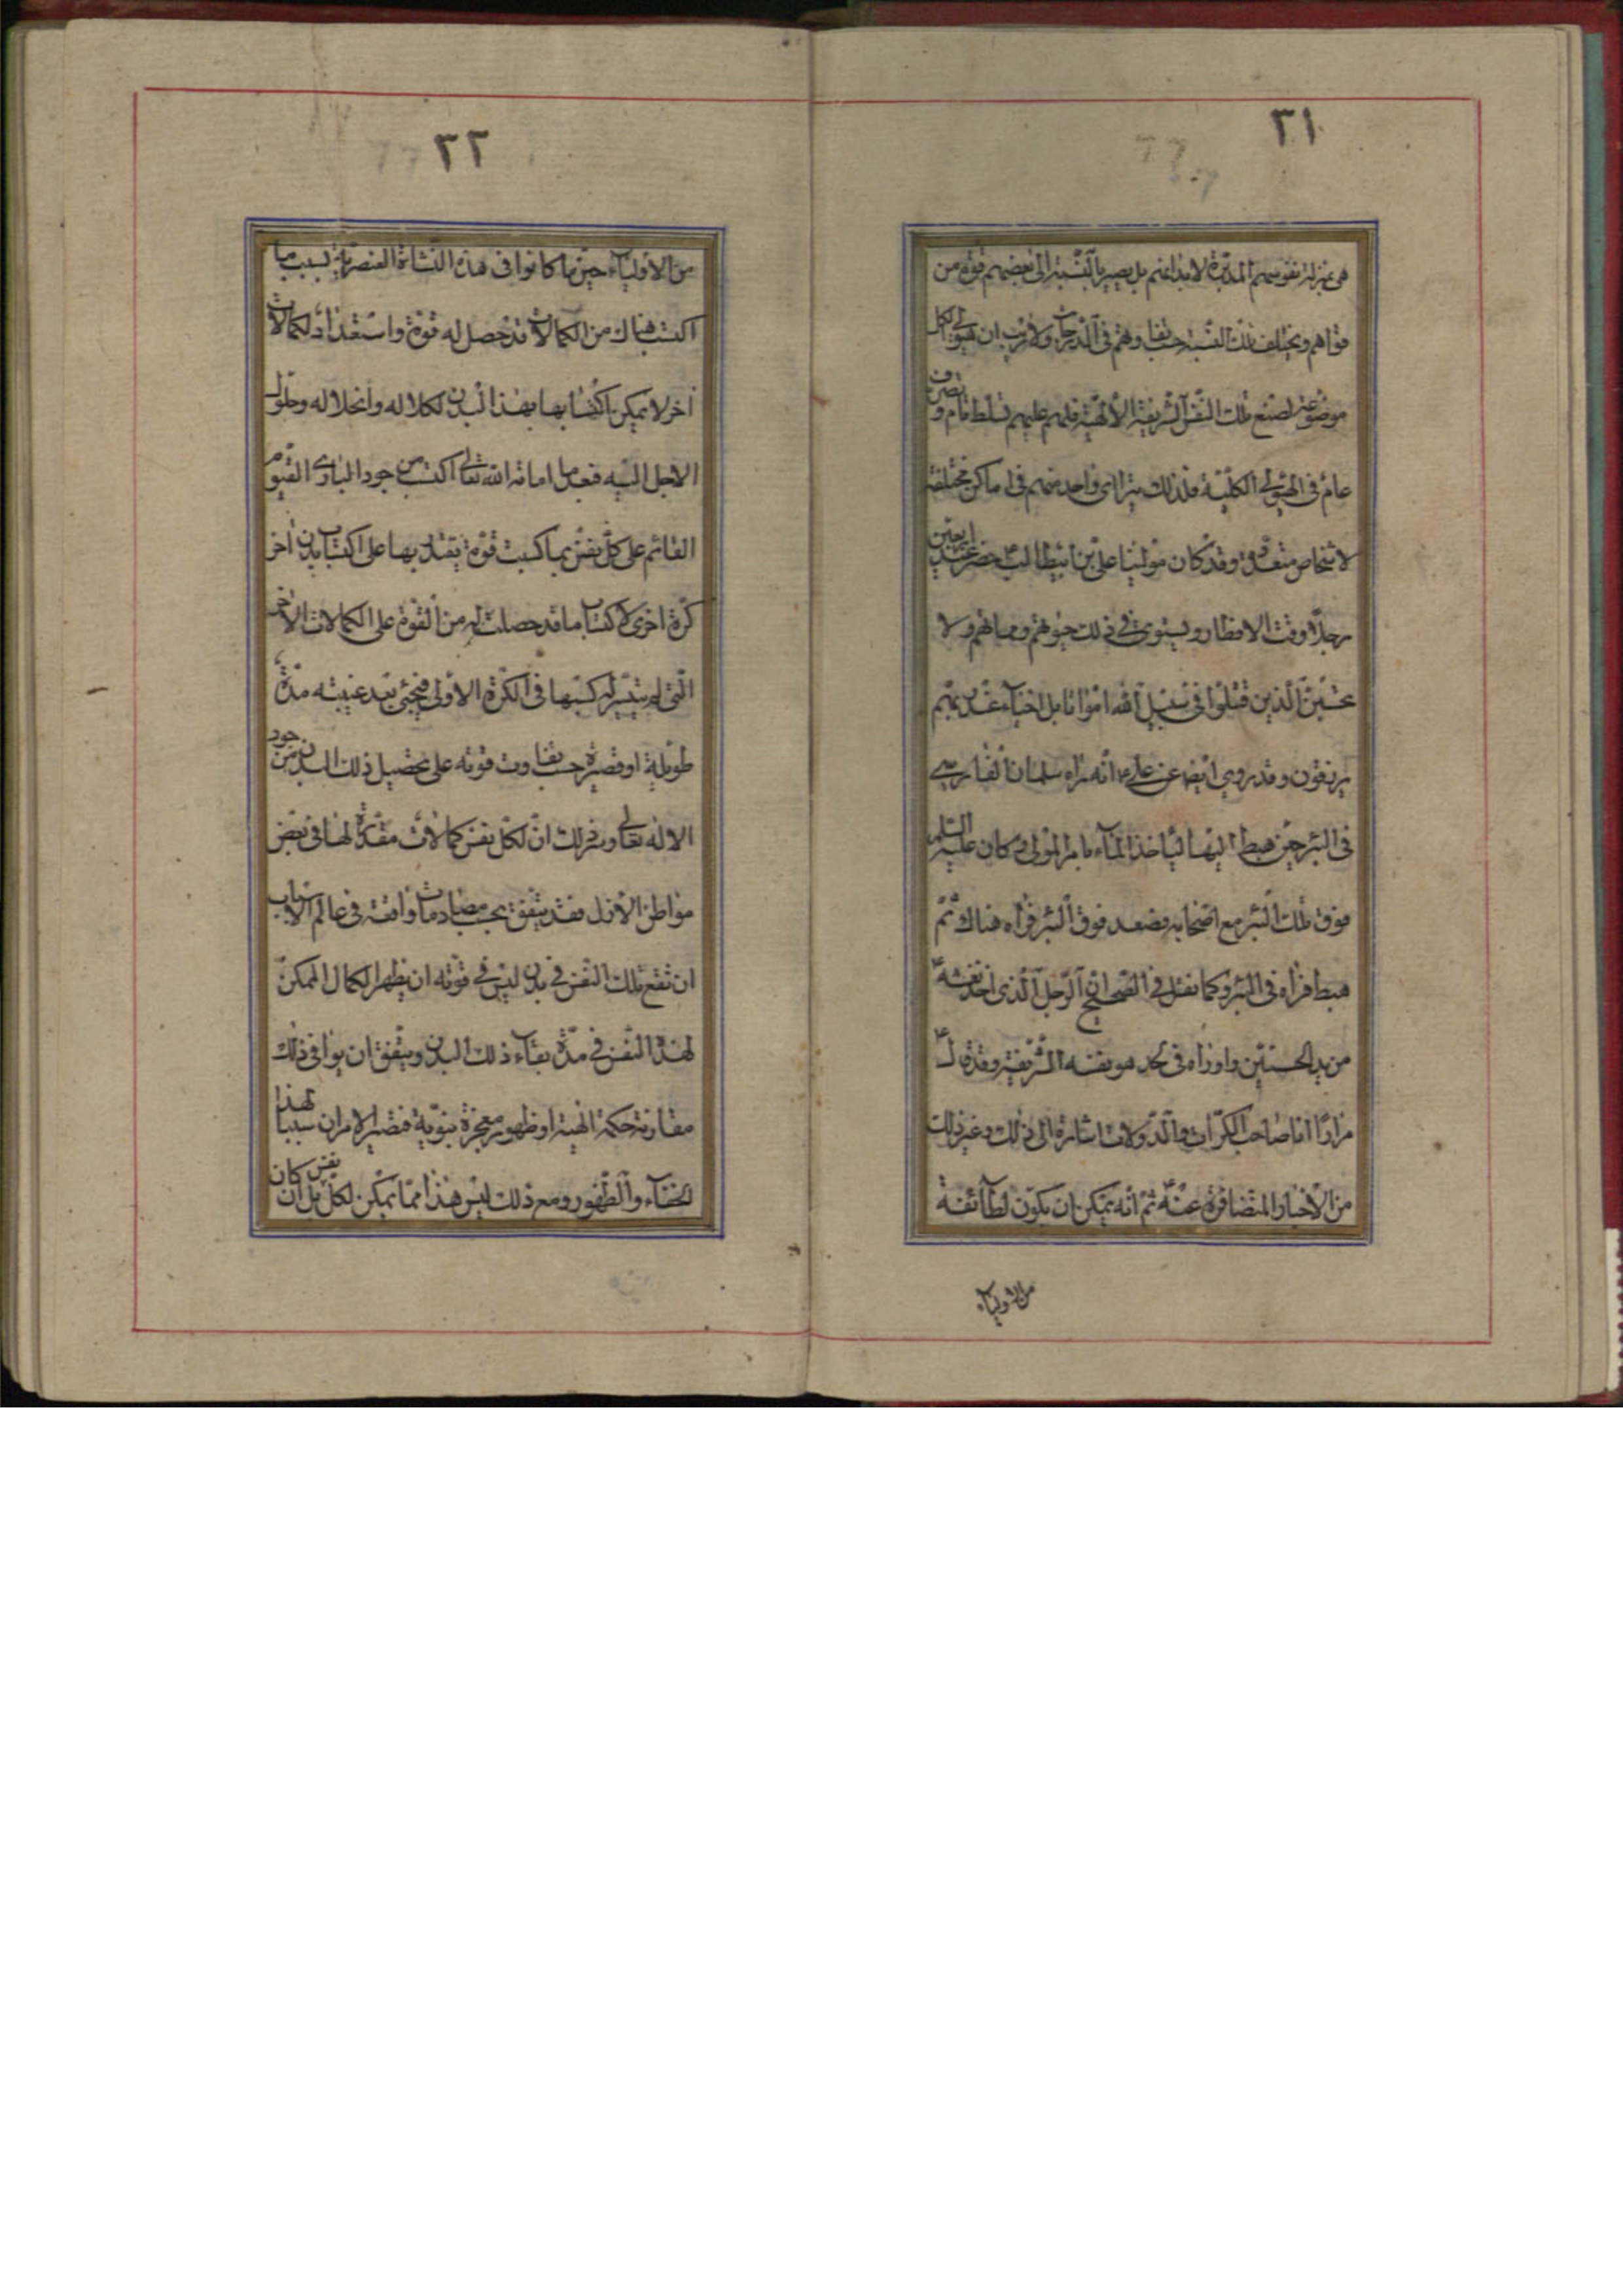 ٣١
هى بمنزلة نفوسهم المدبّرة لابدانهم بل يصير بالنّسبة الى بعضهم قوّة من
قواهم ويختلف تلك النّسبة حسب تفاوتهم فى الدّرجات ولا ريب ان هيولى الكل
موضوعة لصنع تلك النّفس الشّريفة الالهيّة فلهم عليهم تسلّط تام وتصرف
عام فى الهيولى الكليّة فلذلك يترا اى واحد منهم فى اماكن مختلفة
لاشخاص متعدّدة وقد كان مولينا على بن ابيطالب حضر عند اربعين
رجلا وقت الافطار ويستوى فى ذلك حيوتهم ومماتهم ولا
تحسبنّ الّذين قتلوا فى سبيل الله امواتا بل احياء عند ربّهم
يرزقون وقد روى ايضا عن على انّه راه سلمان الفارسى
فى البئر حين هبط اليها ليأخذ الماء بامر المولى وكان عليه السلم
فوق تلك البئر مع اصحابه فصعد فوق البئر فراه هناك ثمّ
هبط فراه فى البئر وكما نقل فى الصّحاح انّ الرّجل الّذى اخذ نعشه
من يد الحسنين واوراه فى لحد هو بنفسه الشّريفة وقد قال
مرارا انا صاحب الكرّات والدّولات اشارة الى ذلك وغير ذلك
من الاخبار المتضافرة عنه ثمّ انّه يمكن ان يكون لطائفة
من الاولياء
٣٢
من الاولياء حين ما كانوا فى هذه النّشاة العنصريّة بسبب ما
اكتسب هناك من الكمالات قد حصل له قوّة واستعداد لكمالات
اخر لا يمكن اكتسابها بهذا البدن لكلاله وانحلاله وحلول
الاجل اليه فبعد ما اماته الله تعالى اكتسب من جود البارى القيّوم
القائم على كلّ نفس بما كسبت قوّة يقتدر بها على اكتساب بدن اخر
كرّة اخرى لاكتساب ما قد حصلت له من القوّة على الكمالات الاخر
الّتى لم يتيسّر له كسبها فى الكرّة الاولى فيجئ بعد غيبته مدّة
طويلة او قصيرة حسب تفاوت قوّته على تحصيل ذلك البدن من جود
الاله تعالى وسر ذلك انّ لكلّ نفس كمالات مقدّرة لها فى بعض
مواطن الازل فقد يتّفق بحسب مصادمات واقعة فى عالم الاسباب
ان تقع تلك النّفس فى بدن ليس فى قوّته ان يظهر الكمال الممكن
لهذه النّفس فى مدّة بقاء ذلك البدن ويتّفق ان يوافى ذلك
مقارنة حكمة الهية او ظهور معجزة نبويّة فتصير الامران سببا لهذا
الخفاء والظّهور ومع ذلك ليس هذا ممّا يمكن لكلّ نفس بل ان كان